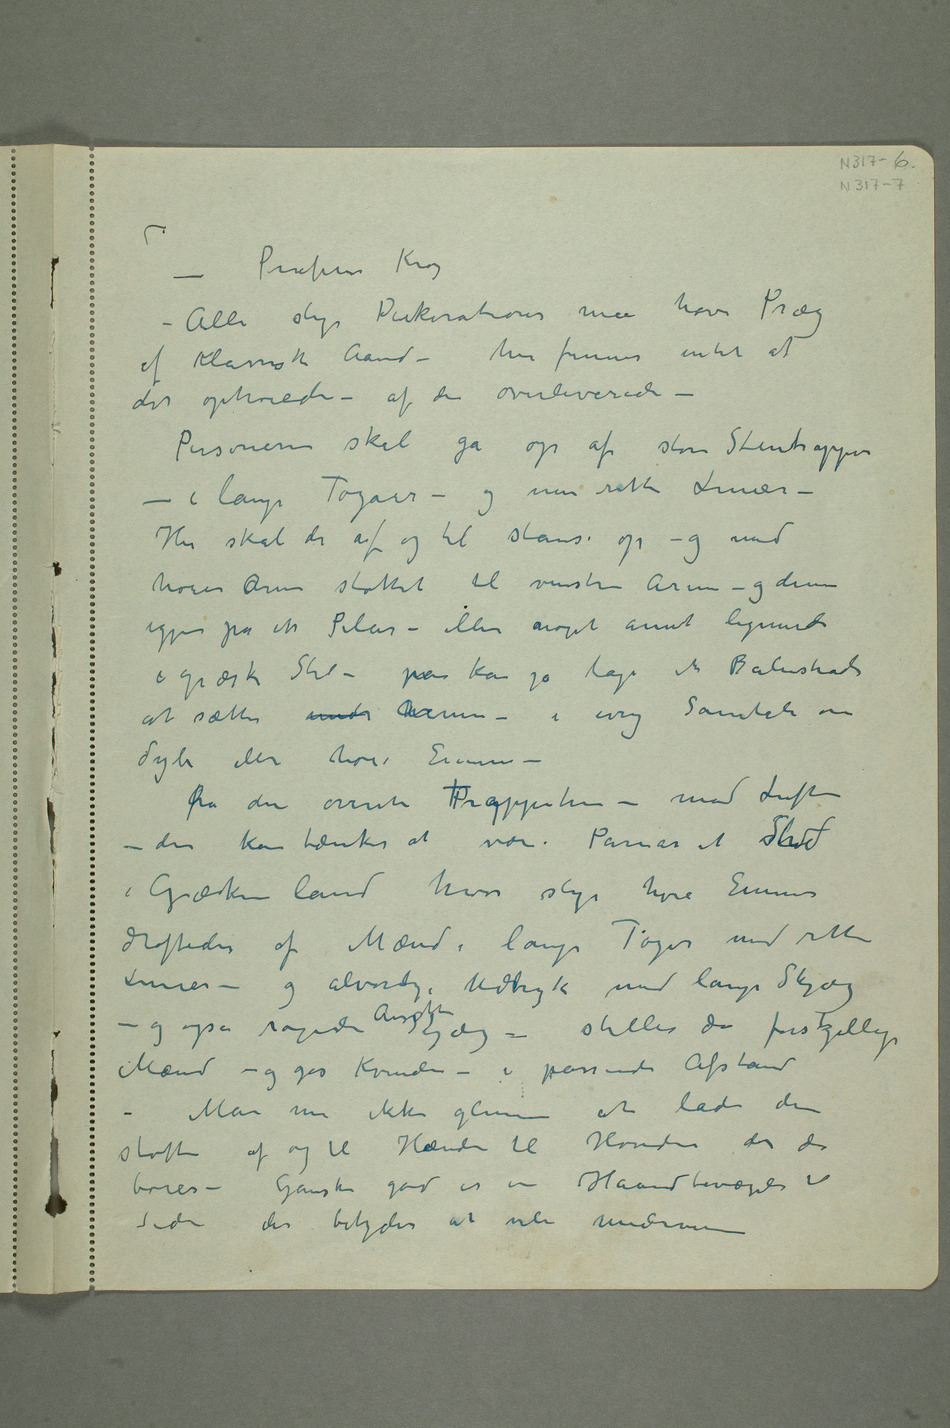 N317-6.
N317-7
— Professor Krag
– Alle slige Dekorationer maa have Præg
af Klassisk Aand – her finnes intet af
det ophøiede – af den overleverede –
Personerne skal gå op af store Stentrapper
– i lange Togaer – og men rette Linier –
Her skal de af og til stanse op – og med
høire Arm støttet til venstre Arm – og denne
igjen på et Pilar – eller noget annet lignende
i græsk Stil – kan jo lage et Balustrade
at sætte under henne – i ivrig Samtale om
dybe eller høie Emner –
fra den øverste Trappetrin – mod Luften
– der kan tænkes at være Parnas et Sted
i Grækenland hvor slige høie Emner
drøftedes af Mænd i lange Toger med rette
Linier – og alvorlig Udtryk med lange Skjæg
– og også ragede Ansigter – stilles da forskjellige
Mænd – og gjø Kvinder – i passende Afstand
– Man må ikke glemme at lade dem
støtte af og til Hænder til Hovedet der da
bøies – Ganske god er en Haandbevægelse til
Siden der betyder at ville